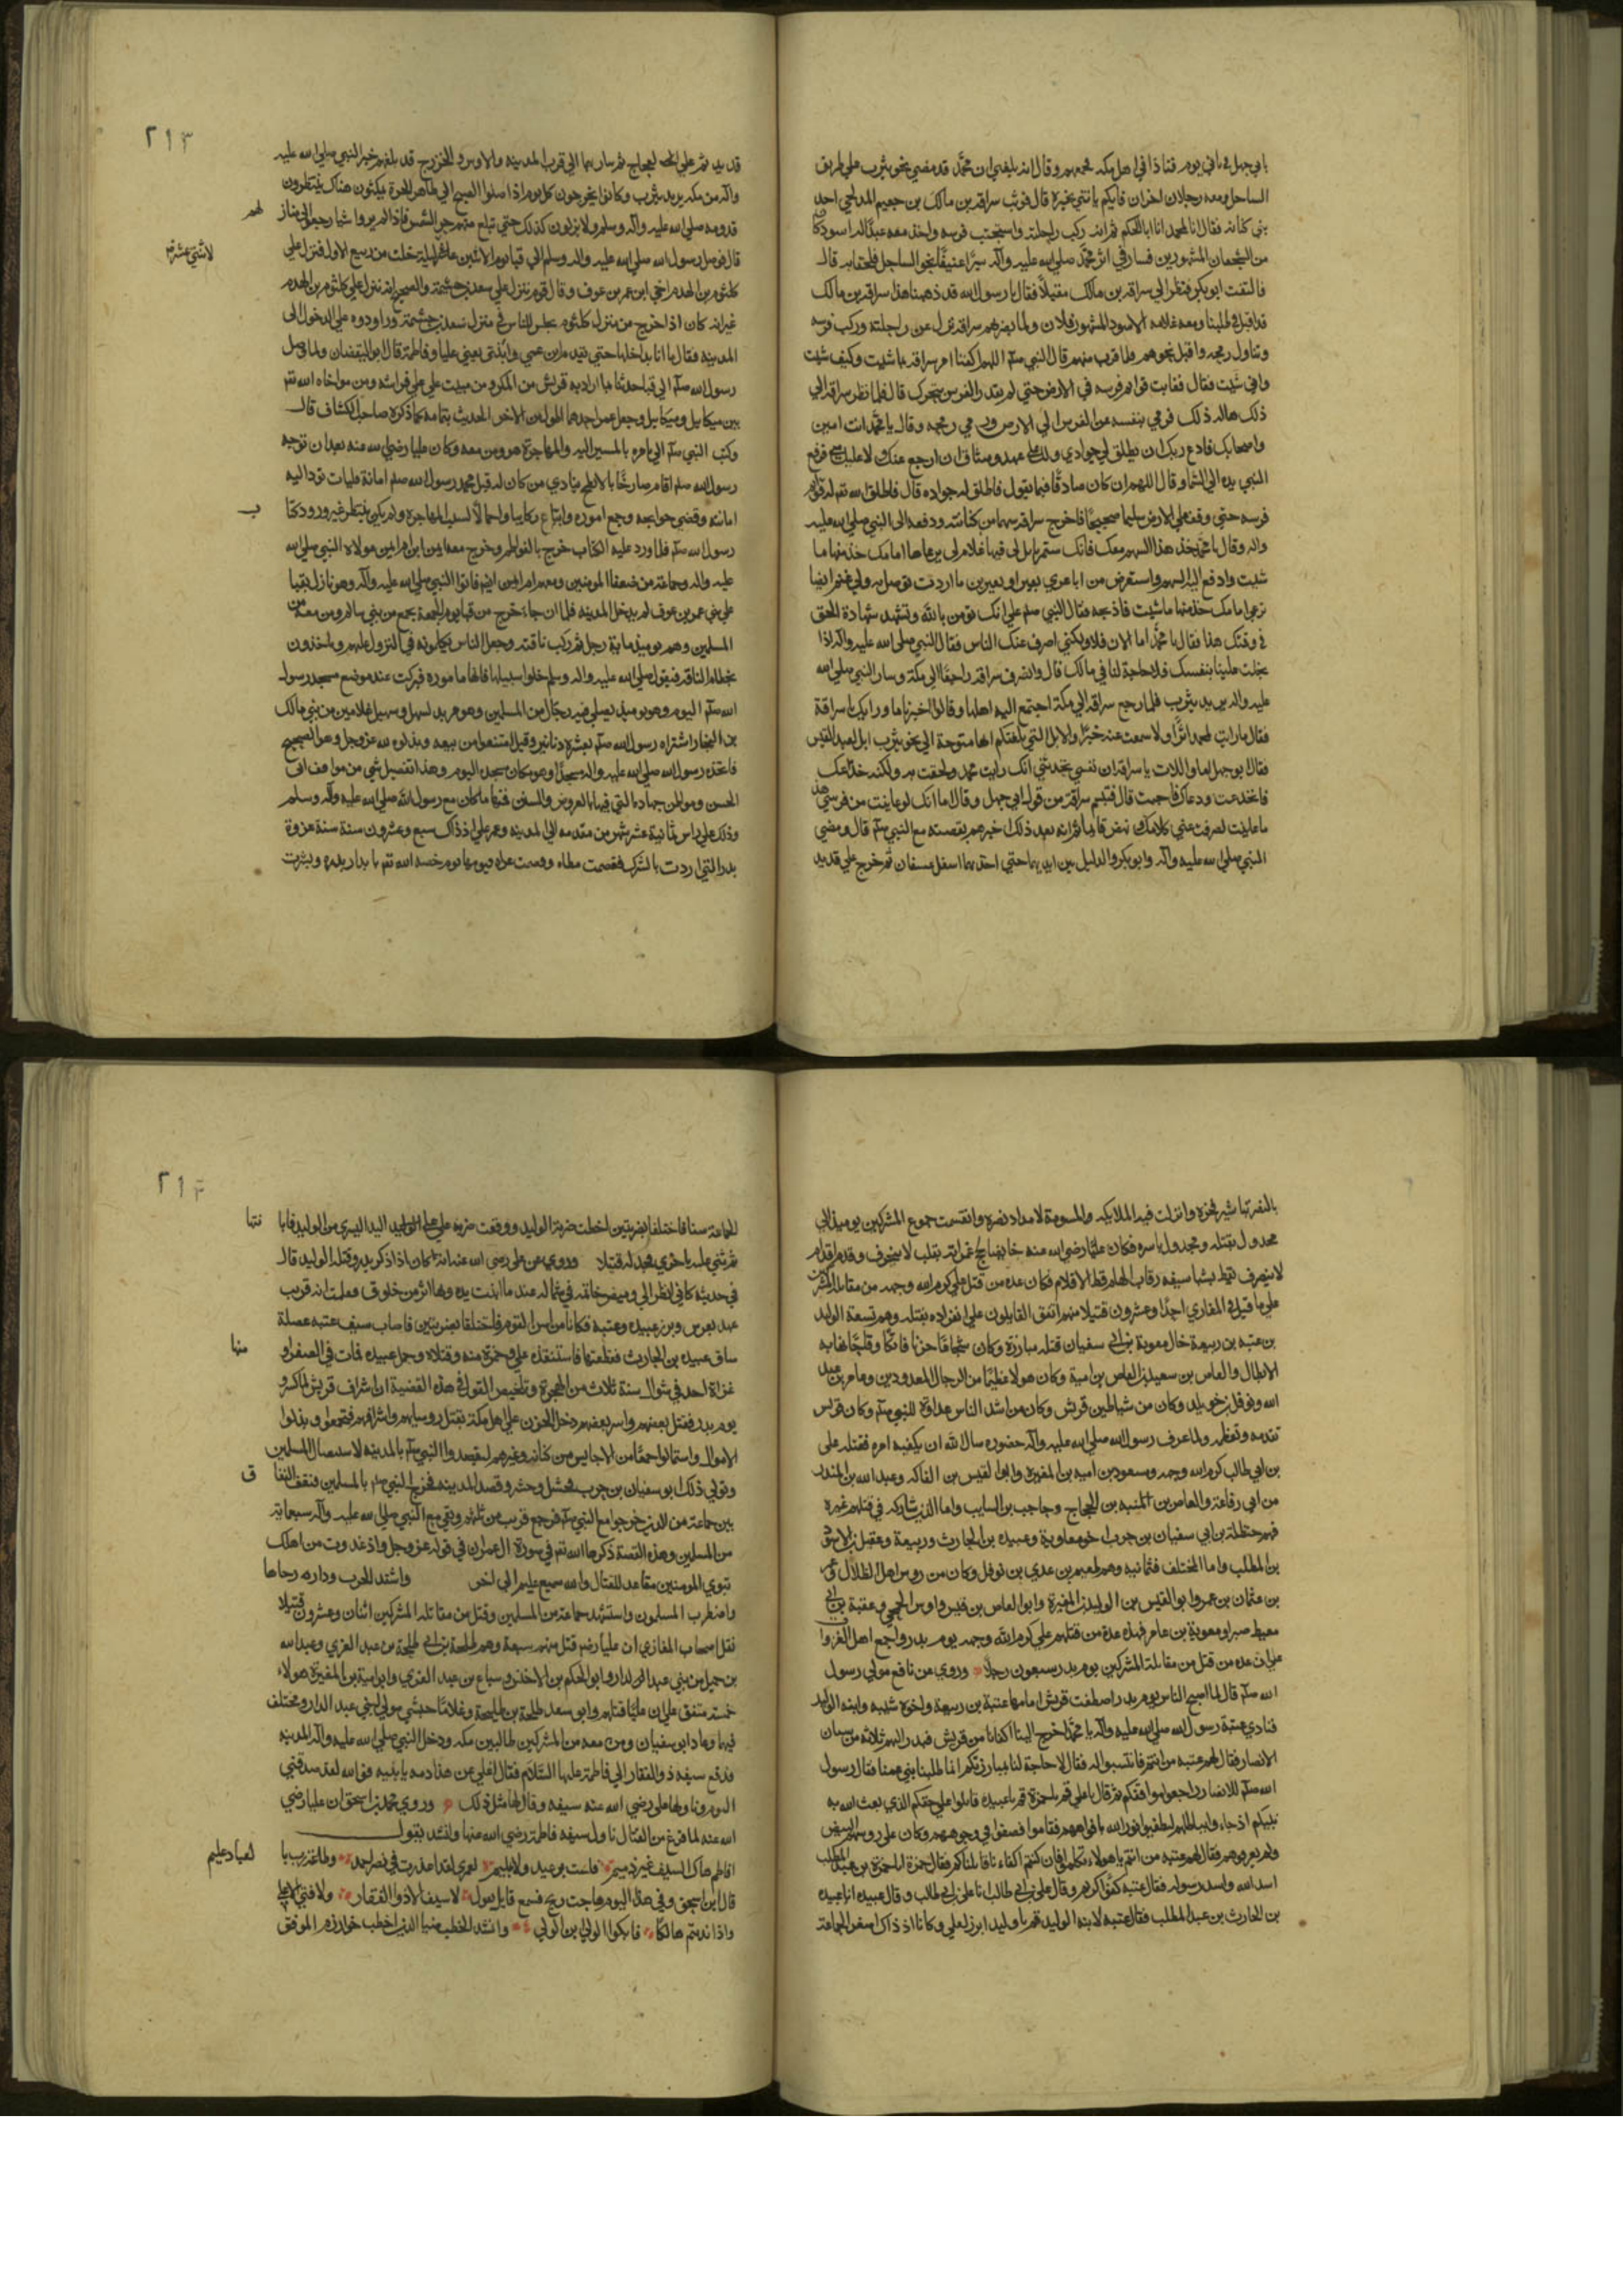 بابي جهل في ثاني يوم فنادا في اهل مكه فجمعهم وقال انه بلغني ان محمد قد مضي نحو يثرب علي طريق
الساحل ومعه رجلان اخران فايكم ياتني بخبره قال فوثب سراقة بن مالك بن جعيم المدلجي احد
بني كنانه فقال انا لمحمد انا ابا الحكم ثم انه ركب راحلته واستجنب فرسه واخذ معه عبدًا له اسود كان
من الشجعان المشهورين فسار في اثر محمد صلي الله عليه وآله سيرًا عنيفًا نحو الساحل فلحقا به قال
فالتفت ابو بكر فنظر الي سراقه بن مالك مقبلًا فقال يا رسول الله قد ذهبنا هذا سراقه بن مالك
قد اقبل في طلبنا ومعه غلامه الاسود المشهور فلان ولما بصرهم سراقه نزل عن راحلته وركب فرسه
وتناول رمحه واقبل نحوهم فلما قرب منهم قال النبي صلعم اللهم اكفنا امر سراقه بما شيت وكيف شيت
واني شيت فقال فغابت قوائم فرسه في الارض حتي لم يقدر الفرس يتحرك قال فلما نظر سراقه الي
ذلك هاله ذلك فرمي بنفسه عن الفرس الي الارض ورمي رمحه وقال يا محمد انت امين
واصحابك فادع ربك ان يطلق لي جوادي ولك علي عهد وميثاق ان ارجع عنك ولا عليك مني فرفع
النبي يده الي السما وقال اللهم ان كان صادقًا فيما يقول فاطلق له جواده قال فاطلق الله تعم له قوائم
فرسه حتي وقف علي الارض سليما صحيحًا فاخرج سراقه سهما من كنانته ودفعه الي النبي صلي الله عليه
واله وقال يا محمد خذ هذا السهم معك فانك ستمر بابل لي فيها غلام لي يرعاها امامك خذ منها ما
شيت وادفع اليه السهم واستعرض من اباعري بعير او بعيرين ما اردت توصل به ولي غنم ايضا
ترعي امامك خذ منها ما شيت فاذبحه فقال النبي صلعم علي انك تومن بالله وتشهد شهادة الحق
في وقتك هذا فقال يا محمد اما الان فلا ولكني اصرف عنك الناس فقال النبي صلي الله عليه واله اذا
بخلت علينا بنفسك فلا حاجة لنا في مالك قال وانصرف سراقه راجعًا الي مكة وسار النبي صلي الله
عليه واله يريد يثرب فلما رجع سراقه الي مكة اجتمع اليه اهلها وقالوا اخبرنا ما وراك يا سراقة
فقال ما رايت لمحمد اثرًا ولا سمعت عنه خبرًا والابل التي بلغتكم انها متوجهة الي نحو يثرب ابل لعبد القيس
فقال ابو جهل اما واللات يا سراقه ان نفسي تحدثني انك رايت محمد ولحقت به ولكنه خدعك
فانخدعت ودعاك فاجبت قال فتبسم سراقة من قول ابي جهل وقال اما انك لو عاينت من فرسي هذا
ما عاينت لصرفت عني كلامك نهض قايما ثم انه بعد ذلك اخبرهم بقصته مع النبي صلعم قال ومضي
النبي صلي الله عليه وآله وابو بكر والدليل بين ايديهما حتي اخذ بهما اسفل عسفان ثم خرج علي قديد
٢١٣
قديد ثم علي الحجاج ثم سار بهما الي قرب المدينه والاوس والخزرج قد بلغهم خبر النبي صلي الله عليه
وآله من مكه يريد يثرب وكانوا يخرجون كل يوم اذا صلوا الصبح الي ظاهر الحرة يمكثون هناك ينتظرون
قدومه صلي الله عليه وآله وسلم ولا يزالون كذلك حتي تبلغ منهم حر الشمس فاذا لم يروا شيا رجعوا الي مناز
لهم
قال فوصل رسول الله صلي الله عليه واله وسلم الي قبا يوم الاثنين ليلة خلت من ربيع الاول فنزل علي
لاثنتي عشرة
كلثوم بن الهدم اخي ابن عمر بن عوف وقال قوم نزل علي سعد بن خيثمة والصحيح انه نزل علي كلثوم بن الهدم
غير انه كان اذا خرج من منزل كلثوم يجلس للناس في منزل سعد بن خيثمة وراودوه علي الدخول الي
المدينه فقال ما انا بداخلها حتي يقدم ابن عمي وابنتي يعني عليا وفاطمة قال ابو اليقضان ولما وصل
رسول الله صلعم الي قبا حدثنا بما اراد به قريش من المكر ومن مبيت علي علي فراشه ومن مواخاه الله تعم
بين ميكاييل وجعل عمر احدهما اطول من الاخر الحديث بتمامه كما ذكره صاحب الكشاف قال
وكتب النبي صلعم الي يامره بالمسير اليه والمهاجرة هو ومن معه وكان عليا رضي الله عنه بعد ان توجه
رسول الله صلعم اقام صارخًا بالابطح ينادي من كان له قبل محمد رسول الله صلعم امانة فليات تودا اليه
امانته وقضي حوايجه وجمع اموره وابتاع ركايبا واجمالًا لسبب المهاجرة ولم يكن ينتظر غير ورود كتا
ب
رسول الله صلعم فلما ورد عليه الكتاب خرج بالفواطم وخرج معه ايمن ابن ام ايمن مولاه النبي صلي الله
عليه واله وجماعة من ضعفا المومنين ومعهم ام ايمن ايضم فاتوا النبي صلي الله عليه وآله وهو نازل بقبا
علي بني عمر بن عوف لم يدخل المدينه فلما ان جاء خرج من قبا يوم الجمعة بجمع من بني سالم ومن معه من
المسلمين وهم يوميذ ماية رجل ثم ركب ناقته وجعل الناس يكلمونه في النزول عليهم وياخذون
بخطام الناقه فيقول صلي الله عليه واله وسلم خلوا سبيلها فانها ماموره فبركت عند موضع مسجد رسول
الله صلعم اليوم وهو يوميذ يصلي فيه رجال من المسلمين وهو مربد لسهل وسهيل غلامين من بني مالك
بن النجار اشتراه رسول الله صلعم بعشرة دنانير وقيل امتنعوا من بيعه وبذلوه لله عز وجل وهو الصحيح
فاتخذه رسول الله صلي الله عليه واله مسجدًا وهو مكان مسجده اليوم وهذا تفصيل شي من مواقف ابي
الحسن ومواطن جهاده التي فيها بالعروض والسنن فمنها ما كان مع رسول الله صلي الله عليه وآله وسلم
وذلك علي راس ثمانية عشر شهر من مقدمه الي المدينه وعمر علي اذ ذاك سبع وعشرون سنة سنة غزوة
بدر التي اردت بالشرك فقصمت مطاه وفصمت عراه فيومها يوم خصه الله تعم بابدار بدره وبشرت
بالنصر تباشير فجره وانزلت فيه الملايكه والمسومة لامداد نصره وانقسمت جموع المشركين يوميذ الي
مجدول بقتله ومجدول باسره فكان عليًا رضي الله عنه خايضا لج غمراته بقلب لا ينحرف وقدم اقدام
لا ينصرف يقط بشبا سيفه رقاب الهام قط الاقلام فكان عده من قتل علي كرم الله وجهه من مقاتلة المشركين
علي ما قيل في المغازي احدًا وعشرون قتيلا منهم اتفق الناقلون علي انفراده بقتله وهم تسعة الوليد
بن عتبه بن ربيعة خال معوية بن ابي سفيان قتله مبارزة وكان شجاعًا جريا فاتكًا وقلجًا تهابه
الابطال والعاص بن سعيد بن العاص بن امية وكان هولا عظيمًا من الرجال المعدودين وعامر بن عبد
الله ونوفل بن خويلد وكان من شياطين قريش وكان من اشد الناس عداوة للنبي صلعم وكان قريش
تقدمه وتعظمه ولما عرف رسول الله صلي الله عليه وآله حضوره سال الله ان يكفيه امره فقتله علي
بن ابي طالب كرم الله وجهه ومسعود بن اميه بن المغيره وابوا القيس بن الفاكه وعبد الله بن المنذر
من ابي رفاعة والعاص بن المنبه بن الحجاج وحاجب بن السايب واما الذين شاركه في قتلهم غيره
فهم حنظلة بن ابي سفيان بن حرب اخو معاوية وعبيده بن الحارث وربيعة وعقيل بن الاسود
بن المطلب واما المختلف فثمانيه وهم طعيم بن عدي بن نوفل وكان من روس اهل الظلال وعمر
بن عثمان بن عمر وابو القيس بن الوليد بن المغيرة وابوا العاص بن قيس واوس الجمحي وعقبة بن ابي
معيط صبرا ومعوية بن عامر فهذه عدة من قتلهم علي كرم الله وجهه يوم بدر واجمع اهل الغزوا
علي ان عده من قتل من مقاتلة المشركين يوم بدر سبعون رجلًا وروي عن نافع مولي رسول
الله صلعم قال لما اصبح الناس يوم بدر اصطفت قريش امامها عتبة بن ربيعة واخوه شيبه وابنه الوليد
فنادي عتبة رسول الله صلي الله عليه وآله يا محمد اخرج الينا اكفانا من قريش فبدر اليهم ثلاثه من شبان
الانصار فقال لهم عتبه من انتم فانتسبوا له فقال لا حاجة لنا بمبارزتكم انما طلبنا بني عمنا فقال رسول
الله صلعم للانصار ارجعوا مواقفكم ثم قال يا علي قم يا حمزة قم يا عبيده قاتلوا علي حقكم الذي بعث الله به
نبيكم اذ جاءوا بباطلهم ليطفيوا نور الله بافواههم فقاموا فصفوا في وجوههم وكان علي روسهم البيض
ولم يعرفوهم فقال لهم عتبه من انتم يا هولاء تكلموا فان كنتم اكفاء نا قاتلناكم فقال حمزة انا حمزة بن عبد المطلب
اسد الله واسد رسوله فقال عتبه كفؤ كريم وقال علي بن ابي طالب انا علي بن ابي طالب وقال عبيده انا عبيده
بن الحارث بن عبد المطلب فقال عتبه لابنه الوليد قم يا وليد ابرز لعلي وكانا اذ ذاك اصغر الجماعة
٢١٤
للجماعة سنا فاختلفا بضربتين اخطت ضربة الوليد ووقعت ضربة علي علي اليد اليسري من الوليد فابا
نتها
ثم ثني عليه باخري فجدله قتيلا وروي عن علي رضي الله عنه انه كان اذا ذكر بدر وقتله الوليد قال
في حديثه كاني انظر الي وميض خاتمه في شماله عند ما ابنت يده وبها اثر من خلوق فعلمت انه قريب
عهد بعرس وبرز عبيده وعتبه فكانا من اسن القوم فاختلفا بضربتين فاصاب سيف عتبه عضلة
ساق عبيده بن الحارث فقطعتها فاستنقذه علي وحمزة منه وقتلاه وحمل عبيده فمات في الصفرا و
منها
غزاة احد في شوال سنة ثلاث من الهجرة وتلخيص القول في هذه القضية ان اشراف قريش لما كسروا
يوم بدر فقتل بعضهم واسر بعضهم دخل الحزن علي اهل مكة بقتل روسايهم واشرافهم فتجمعوا وبذلوا
الاموال واستمالوا جمعًا من الاحابيس من كنانه وغيرهم ليقصدوا النبي صلعم بالمدينه لاستيصال المسلمين
وتولي ذلك ابو سفيان بن حرب فحشد وحشر وقصد المدينه فخرج النبي صلعم بالمسلمين فنفق النفا
ق
بين جماعة من الذين خرجوا مع النبي صلعم فرجع قريب من ثلثهم وبقي مع النبي صلي الله عليه وآله سبعماية
من المسلمين وهذه القصة ذكرها الله تعم في سورة ال عمران في قوله عز وجل واذ غدوت من اهلك
تبوي المومنين مقاعد للقتال والله سميع عليم الي اخر واشتد الحرب ودارت رحاها
واضطرب المسلمون واستشهد جماعة من المسلمين وقتل من مقاتلة المشركين اثنان وعشرون قتيلا
نقل اصحاب المغازي ان عليا رضم قتل منهم سبعة وهم طلحة بن ابي طلحة بن عبد العزي وعبد الله
بن جميل من بني عبد الدار وابو الحكم بن الاخنس وسباع بن عبد العزي وابو امية بن المغيرة هولاء
خمسة متفق علي ان عليًا قتلهم وابو سعد طلحة بن طلحة وغلامًا حبشي مولي لبني عبد الدار ومختلف
فيها وعاد ابو سفيان ومن معه من المشركين طالبين مكه ودخل النبي صلي الله عليه وآله المدينه
فدفع سيفه ذو الفقار الي فاطمة عليها السلام فقال اغلي عن هذا دمه يا بنيه فوالله لقد صدقني
اليوم وناولها علي رضي الله عنه سيفه وقال لها مثل ذلك وروي محمد بن اسحق ان عليا رضي
الله عنه لما فرغ من القتال ناول سيفه فاطمة رضي الله عنها وانشد يقول
افاطم هاك السيف غير ذميم فلست برعديد ولا بلييم لعمري لقد اعذرت في نصر احمد وطاعة رب با
لعباد عليم
قال ابن اسحق وفي هذا اليوم هاجت ريح فسمع قايل يقول لا سيف الا ذو الفقار ولا فتي الا علي
واذا ندبتم هالكًا فابكوا الولي بن الولي وانشد الخطيب ضيا الدين اخطب خوارزم الموفق